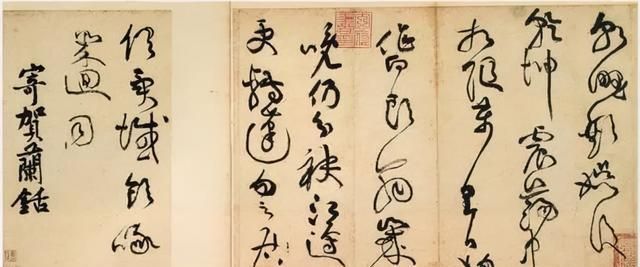 朝野歡娛後
乾坤震蕩中
相隨萬里日總
作白頭翁歲
晚仍分袂江邊
更轉蓬勿云
俱異域飲啄
幾回同
寄賀蘭銛